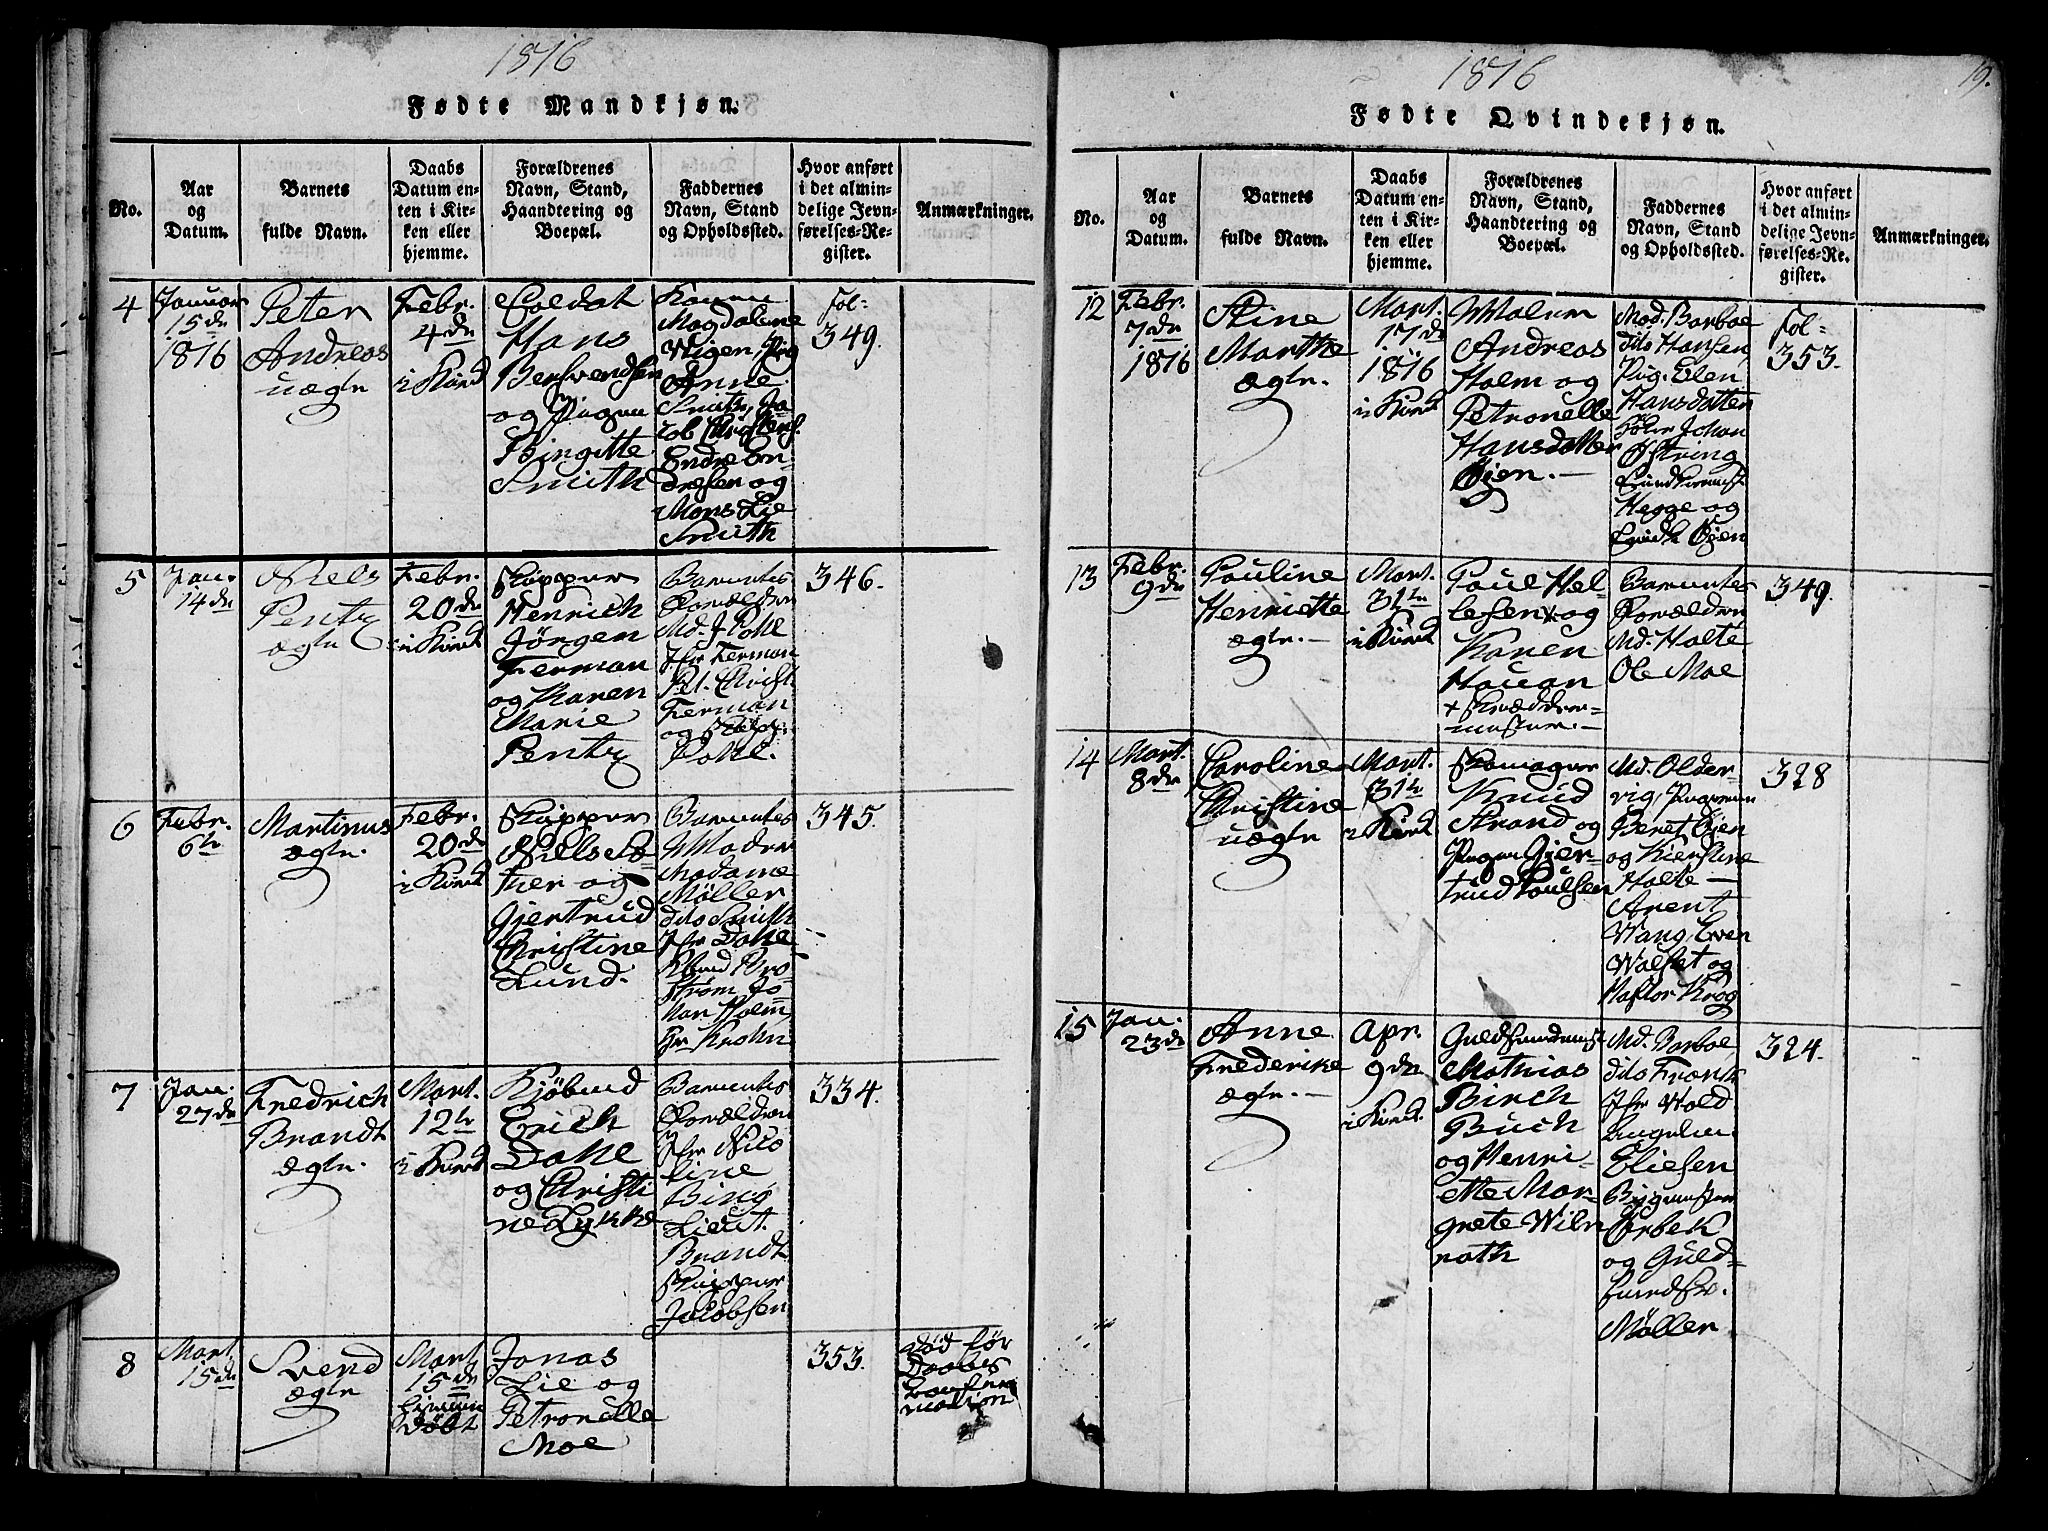 1816
Fødte Mandkjøn.
No.
Aar
og
Datum.
Barnets
fulde Navn.
Daabs
Datum en-
ten i Kir-
ken eller
hjemme.
Forældrenes
Navn, Stand,
Haandtering og
Boepæl.
Faddernes
Navn, Stand
og Opholdssted.
Hvor anført
i det almin-
delige Jevn-
førelses-Re-
gister.
Anmærkninger.
4
Januar
15de
1816
Peter
Andreas
uægte
Febr.
4de
i Kirk
Soldat
Hans
Bersvendsen
og Pigen
Birgitte
Smith
Magdalene
Wigen, Pig
Anne
Smith, Ja-
cob Christens.
Endre En-
dresen og
Mons Lie
Smith
Fol-
349.
5
Jan.
14de
Niels
Pentz
ægte
Febr.
20de
i Kirk
Skipper
Henrich
Jørgen
Ferman
og Karen
Marie
Pentz
Barnets
Forældre
Md. J Pohl
Jfr Ferman
Pet. Christ.
Ferman
og Skip.
Pohl.
346.
6
Febr.
6te
Martinus
ægte.
Febr.
20de
i Kirk
Skipper
Niels Lo-
ther og
Gjertrud
Christine
Lund.
Barnets
Moder
Madame
Møller
dito Smith
Jfr Dahl
Strøm Jo-
han Holm,
Hr Krohn
345.
7
Jan.
27de
Fredrich
Brandt
ægte.
Mart.
12te
i Kirk
Kjøbmd
Erich
Dahl
og Christi
ne Lykke
Barnets
Forældre
Jfr Nico
line
Bing
Lieut.
Brandt
Skipper
Jacobsen
334.
8
Mart.
15de
Svend
ægte
Mart.
15de
Døbt
Jonas
Lie og
Petronelle
Moe
353.
død før
Daabes
Confir
mation
1816
19.
Fødte Qvindekjøn.
No.
Aar
og
Datum.
Barnets
fulde Navn.
Daabs
Datum en-
ten i Kir-
ken eller
hjemme.
Forældrenes
Navn, Stand,
Haandtering og
Boepæl.
Faddernes
Navn, Stand
og Opholdssted.
Hvor anført
i det almin-
delige Jevn-
førelses-Re-
gister.
Anmærkninger.
12
Febr.
7de
1816
Stine
Marthe
ægte.
Mart.
17de
1816
i Kirk
Andreas
Holm og
Petronelle
Hansdatter
Øien.
Mad. Barboe
dito Hansen,
Pig. Elen
Hansdatter
Johan
Østring
Hegge og
Øien
Fol-
353.
13
Febr.
9de
Pauline
Henriette
ægte.
Mart.
31te
i Kirk
Poul Hel-
lesen + og
Karen
Hauan
+ Skrædder-
mester.
Barnets
Forældre
Md. Holte
Ole Moe
349.
14
Mart.
8de
Caroline
Christine
uægte
Mart.
31te
i Kirk
Skomager
Knud
Strand og
Pigen Gjer-
trud Poulsen
Md. Older-
vig, Pigerne
Beret Øien
og Kierstine
Holte
Arent
Wang, Even
Wolset og
Haftor Krog
328
15
Jan.
23de
Anne
Frederike
ægte.
Apr.
9de
i Kirk.
Mathias
Birch
Buch
og Henri-
ette Mar-
grete Wilh
roth
Md. Barboe,
dito Frank
Jfr Wold
Eliesen
Orbek
og Guld-
Møller
324.